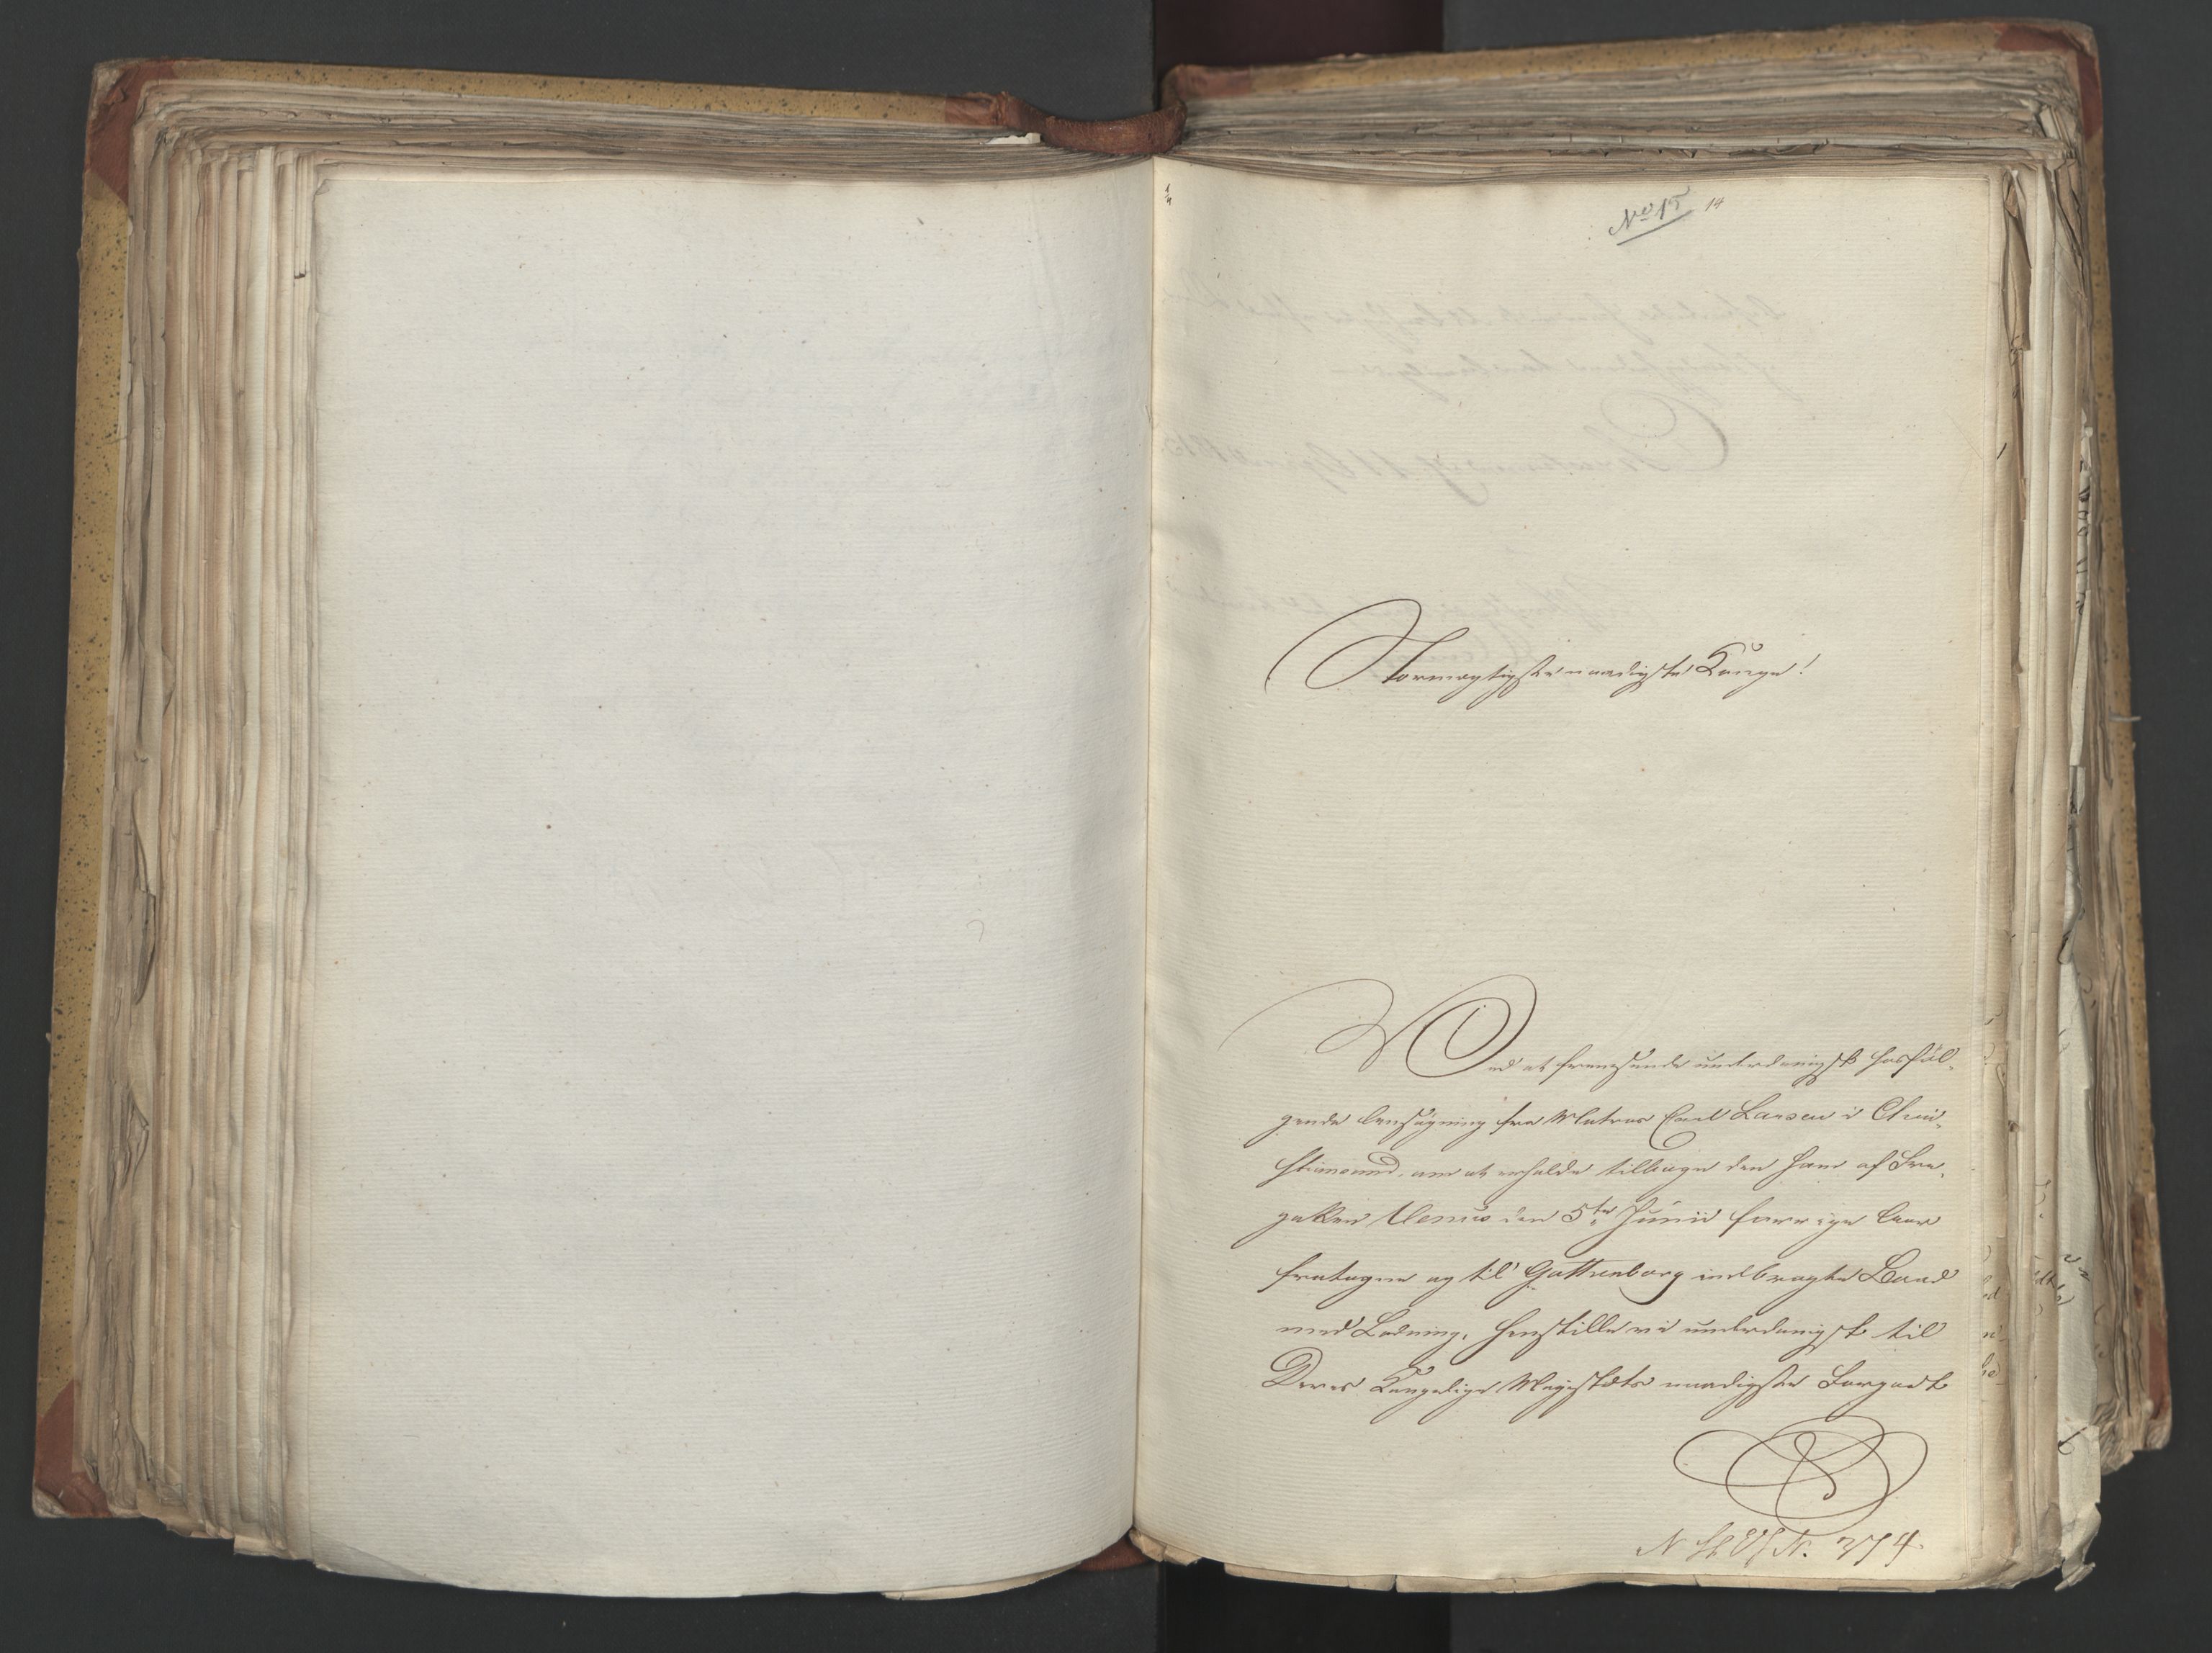 No 15 14
Stormægtigste naadigste Konge!
Ved at fremsende underdanigst hosføl-
gende Ansøgning fra Matros Carl Larsen i Chri-
stiansund, om at erholde tilbage den ham af Fre-
gatten Venus den 5te Junii forrige Aar
fratagne og til Gottenborg indbragte Baad
med Ladning, henstille vi underdanigst til
Deres Kongelige Majestæts naadigste Forgodt
N 374